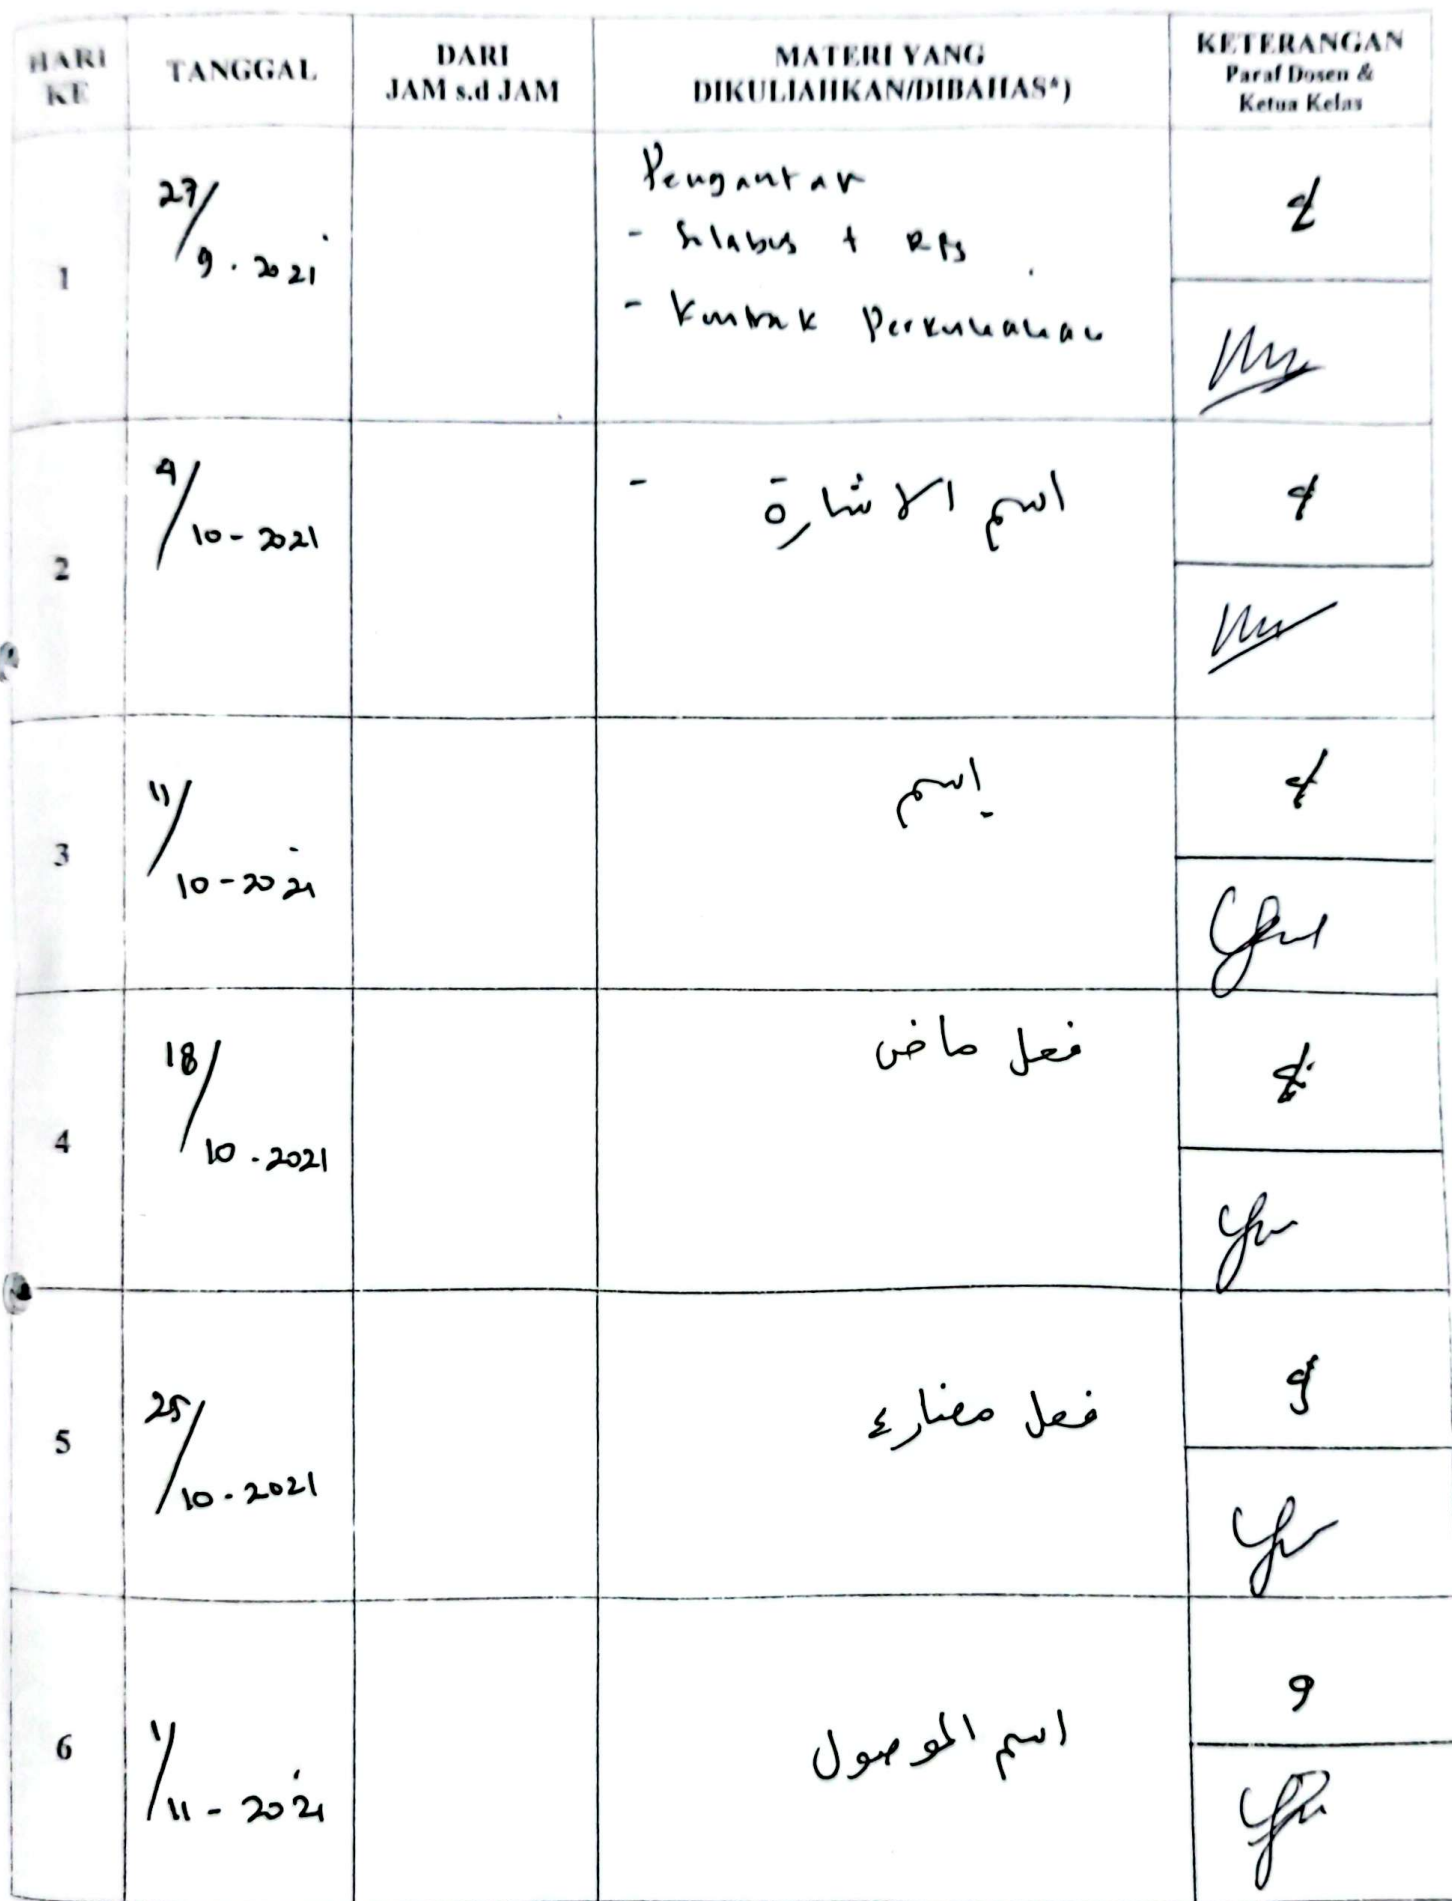 HARI KE
TANGGAL
DARI
JAM s.d JAM
MATERI YANG
DIKULIAHKAN/DIBAHAS*)
KETERANGAN
Paraf Dosen &
Ketua Kelas
1
27/9.2021
Pengantar
- Silabus + RPS
- Kontrak Perkuliahan
2
4/10-2021
- اسم الاشارة
3
11/10-2021
إسم
4
18/10.2021
فعل ماض
5
25/10.2021
فعل مضارع
6
1/11-2021
اسم الموصول